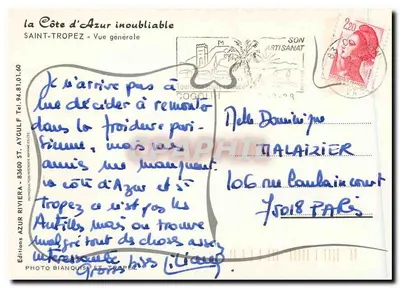 la Côte d'Azur inoubliable
SAINT-TROPEZ - Vue générale
SON
ARTISANAT
COGOLIN
2,20
Je n'arrive pas à
me décider à remonter
dans la froidure pari-
sienne, mais mes
amis me manquent.
la côte d'Azur et St
Tropez ce n'est pas les
Antilles mais on trouve
malgré tout des choses assez
intéressante
Gros bises
Melle Dominique
MALAIZIER
106 rue Caulaincourt
75018 PARIS
Editions AZUR RIVIERA - 83600 ST. AYGULF Tel. 94.81.01.60
PHOTO BIANQUIS ST. TROPEZ